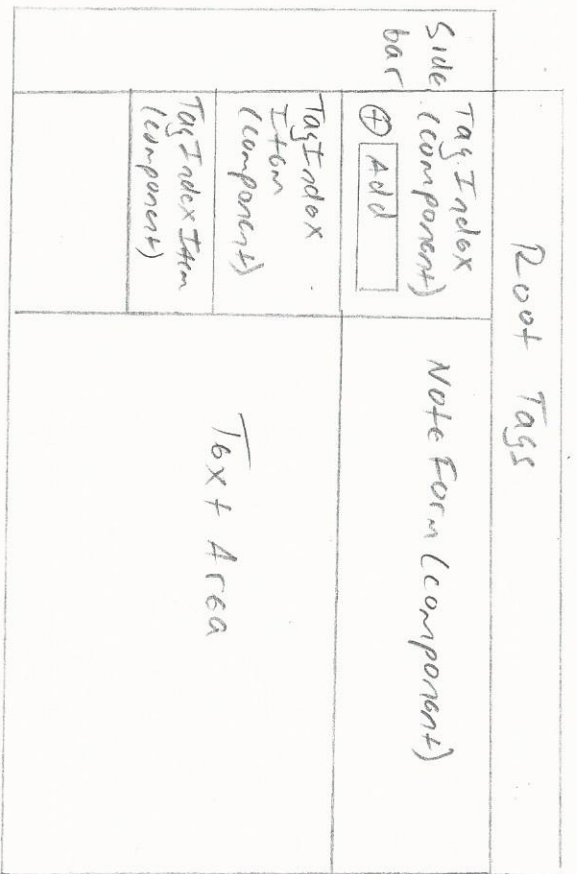 Root Tags
Side
bar
Tag Index
(component)
+ Add
TagIndex
Item
(component)
TagIndexItem
(component)
NoteForm (component)
Text Area